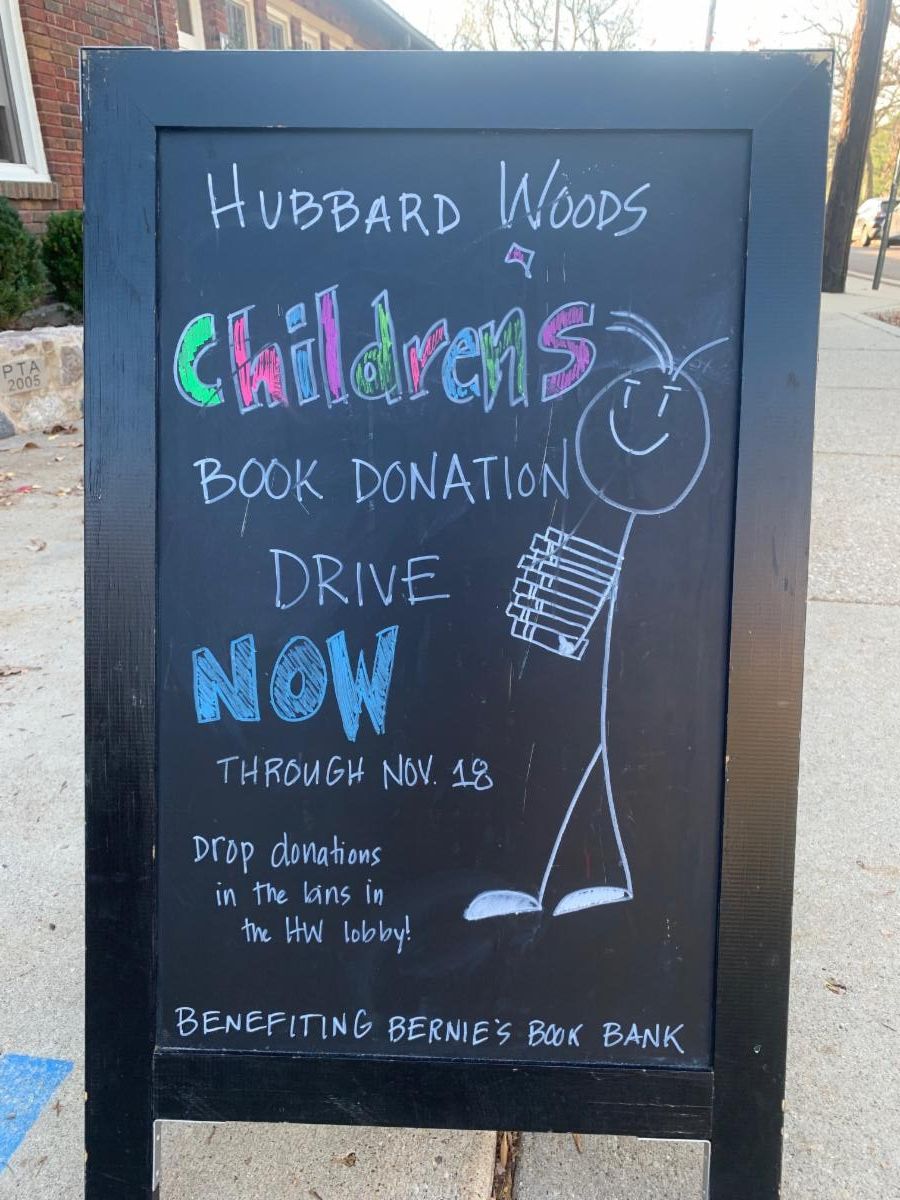 HUBBARD WOODS
Children's
BOOK DONATION
DRIVE
NOW
THROUGH NOV. 18
Drop donations
in the bins in
the HW lobby!
BENEFITING BERNIE'S BOOK BANK
PTA
2005